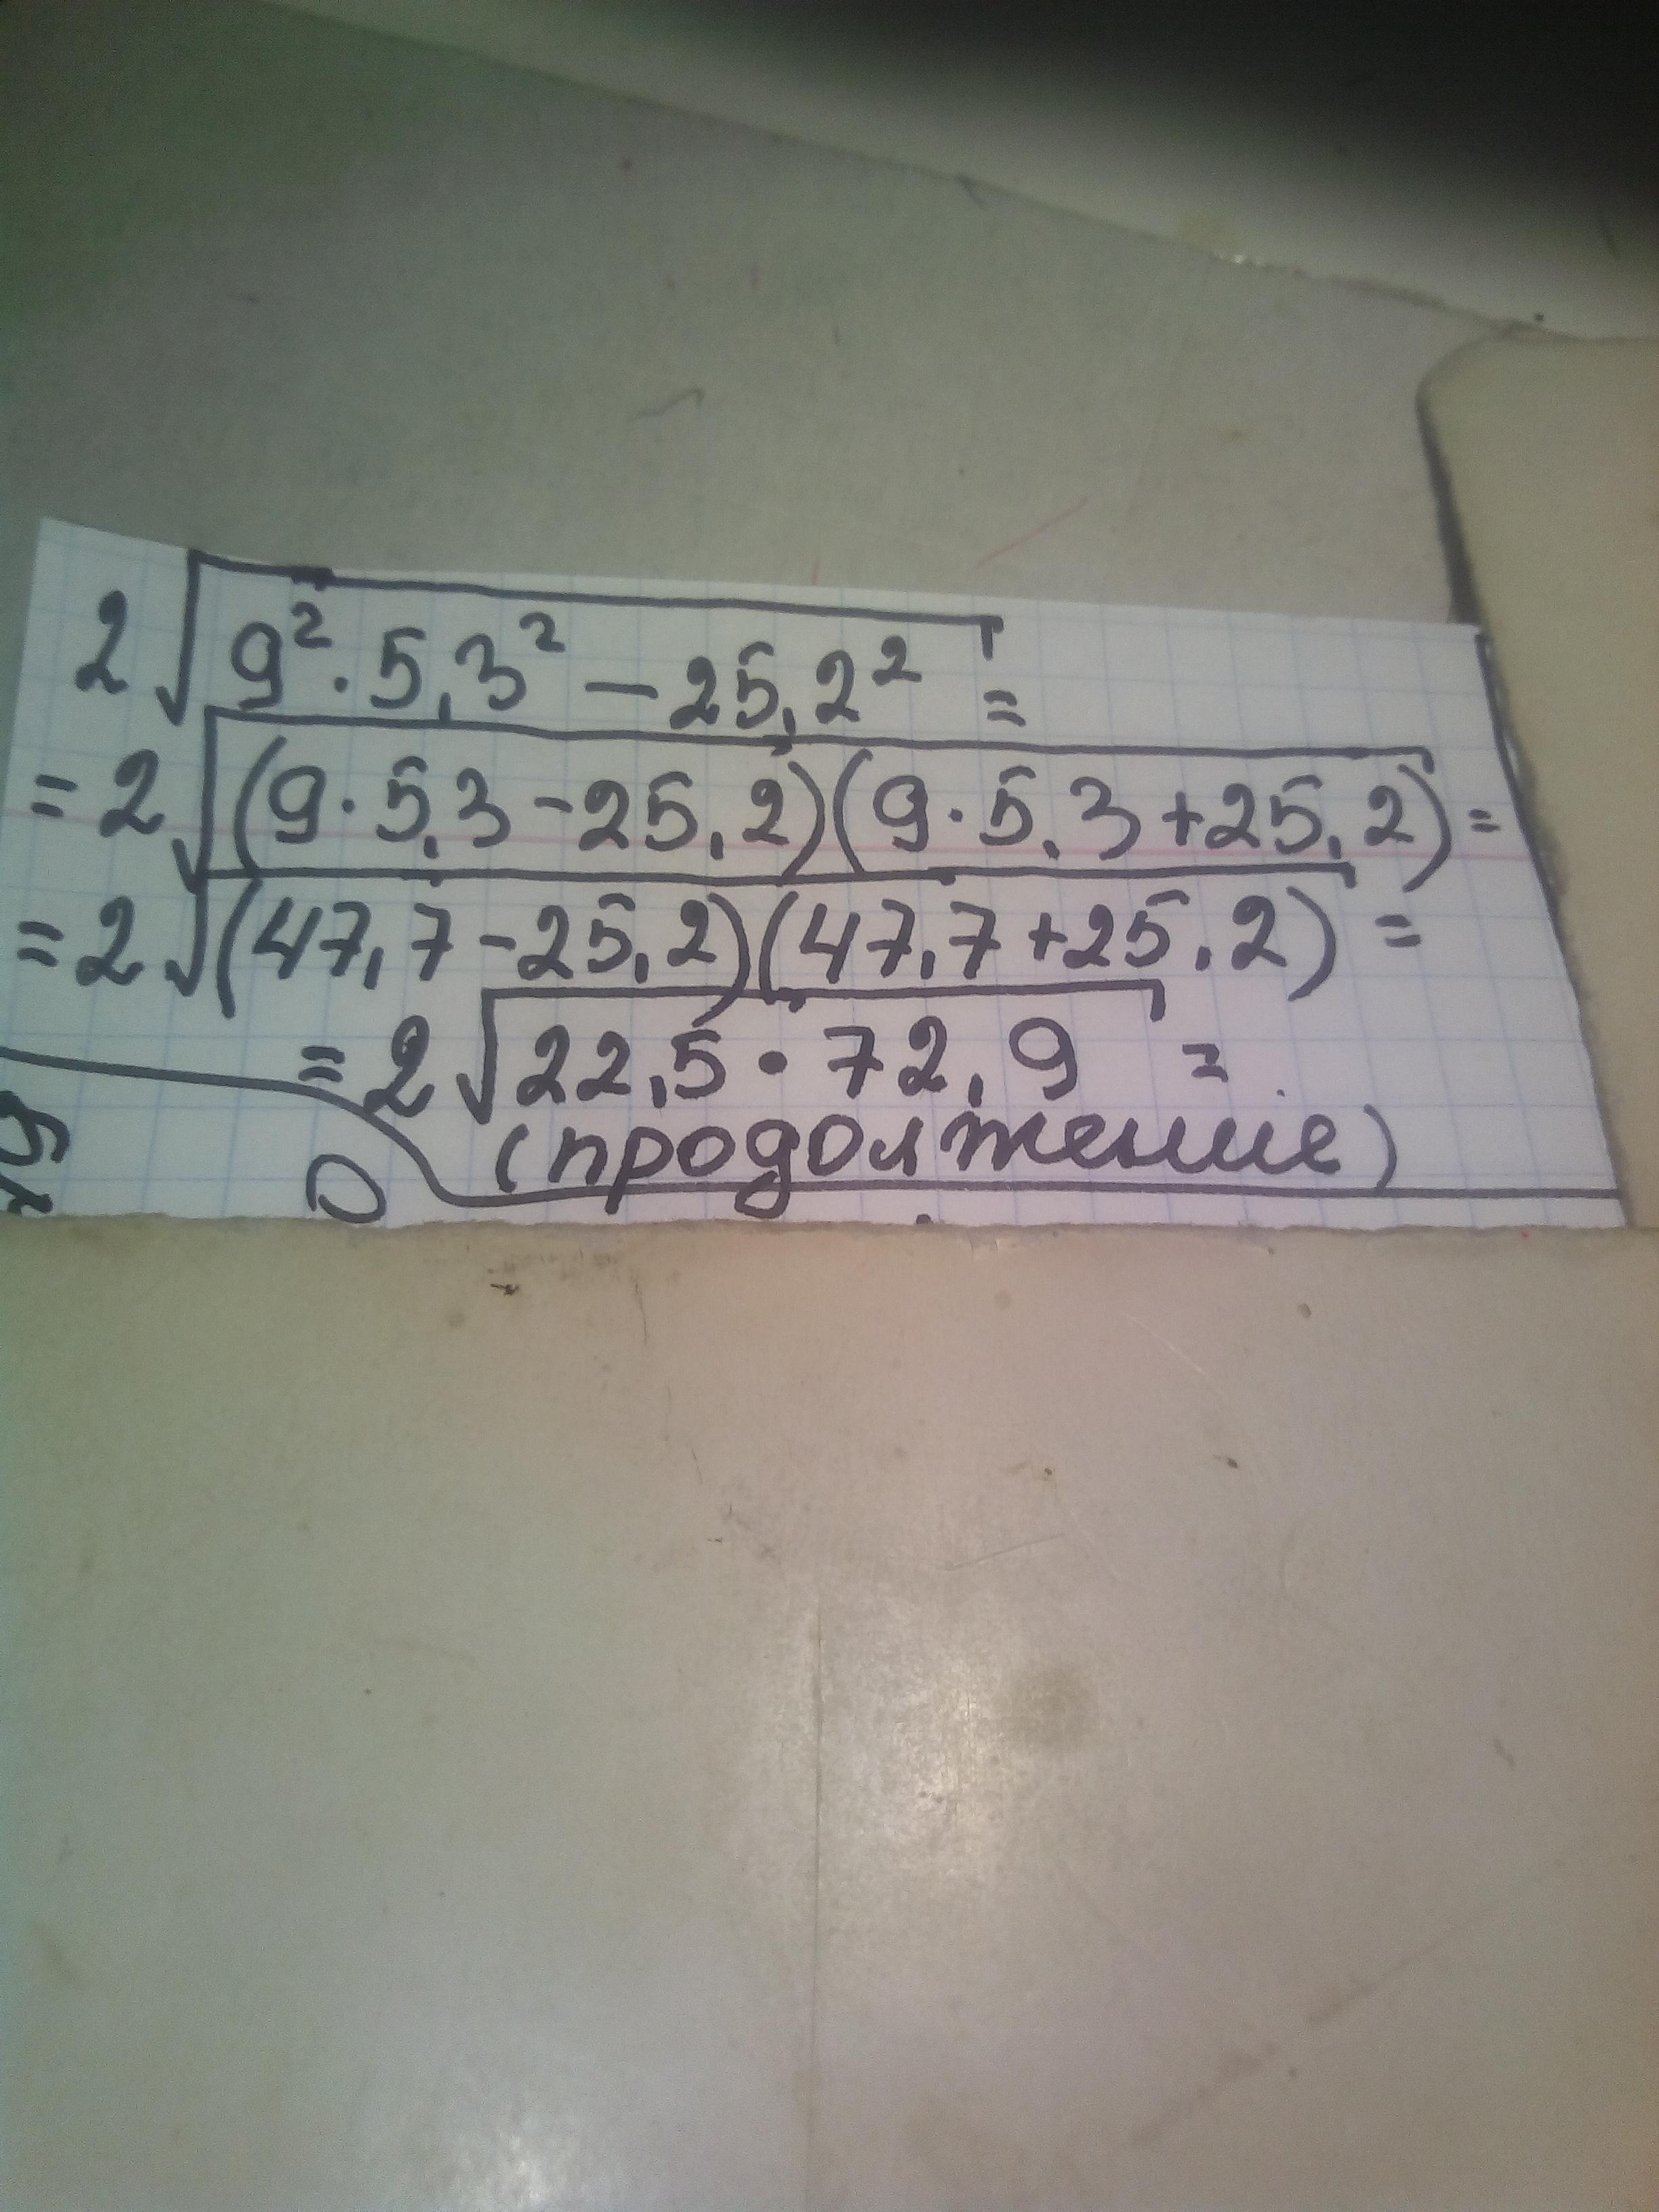 2√9²·5,3² – 25,2² =
= 2√(9·5,3-25,2)(9·5,3+25,2) =
= 2√(47,7-25,2)(47,7+25,2) =
= 2√22,5·72,9 =
(продолжение)